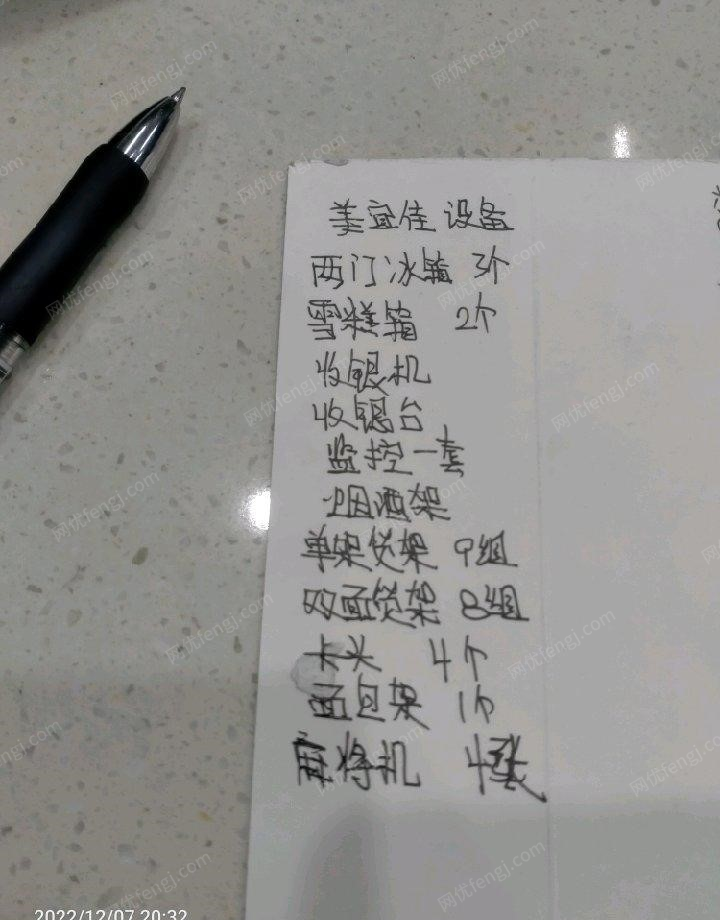 美宜佳 设备
两门冰箱 3个
雪糕箱 2个
收银机
收银台
监控一套
烟酒架
单架货架 9组
双面货架 8组
卡头 4个
面包架 1个
麻将机 4张
2022/12/07 20:32
网优fengj.com